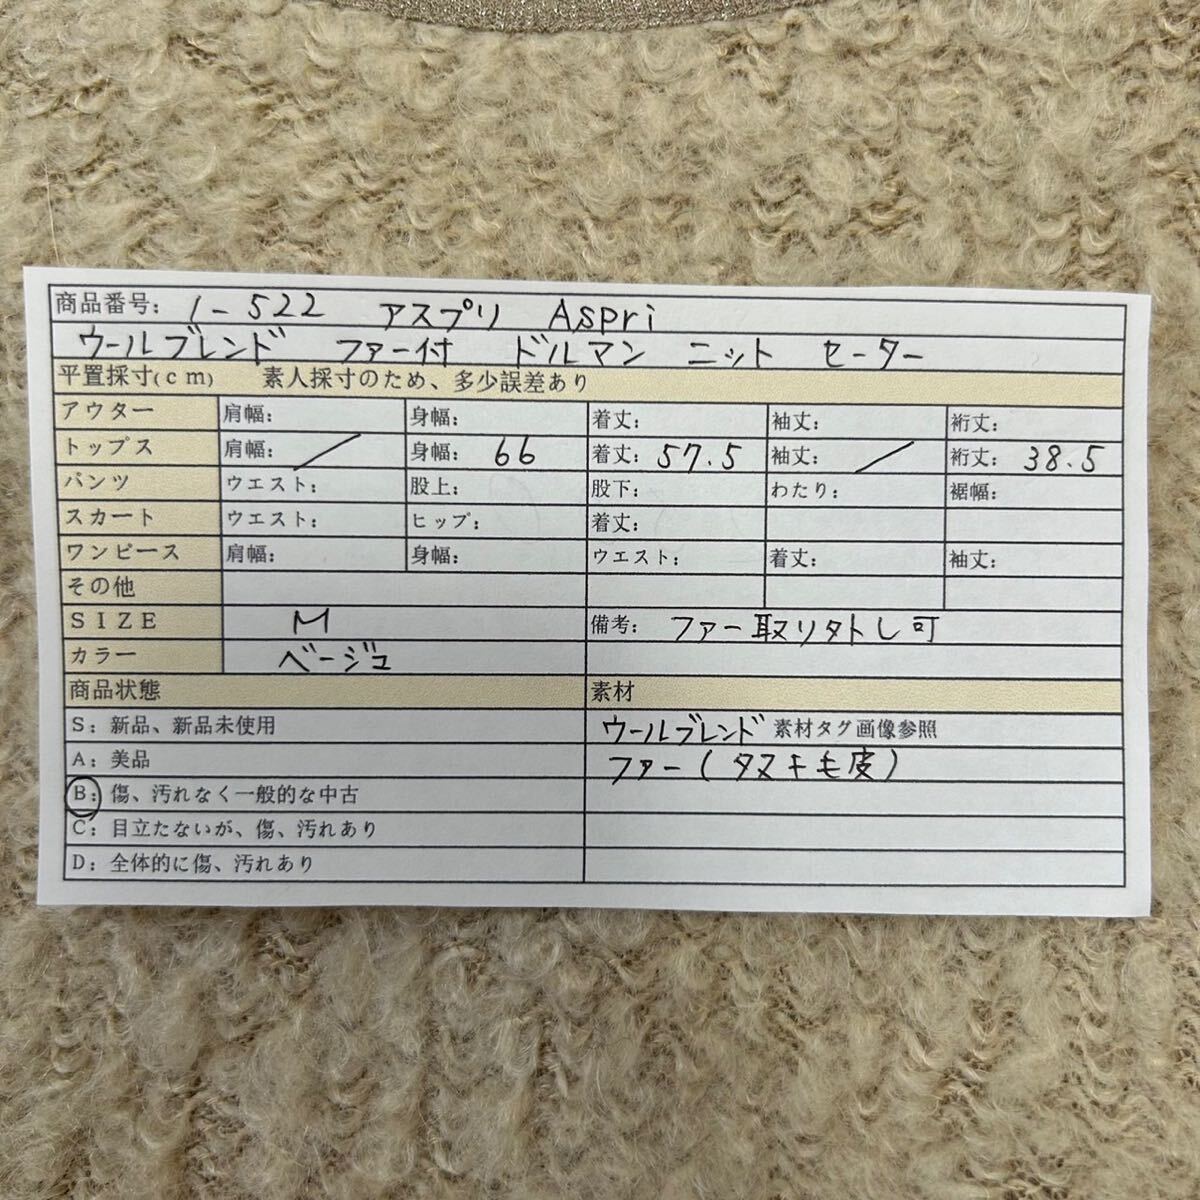 商品番号: 1-522 アスプリ Aspri
ウールブレンド ファー付 ドルマン ニット セーター
平置採寸(cm) 素人採寸のため、多少誤差あり
アウター 肩幅: 身幅: 着丈: 袖丈: 裄丈:
トップス 肩幅: / 身幅: 66 着丈: 57.5 袖丈: / 裄丈: 38.5
パンツ ウエスト: 股上: 股下: わたり: 裾幅:
スカート ウエスト: ヒップ: 着丈:
ワンピース 肩幅: 身幅: ウエスト: 着丈: 袖丈:
その他
SIZE M 備考: ファー取り外し可
カラー ベージュ
商品状態 素材
S: 新品、新品未使用 ウールブレンド 素材タグ画像参照
A: 美品 ファー(タヌキ毛皮)
B: 傷、汚れなく一般的な中古
C: 目立たないが、傷、汚れあり
D: 全体的に傷、汚れあり